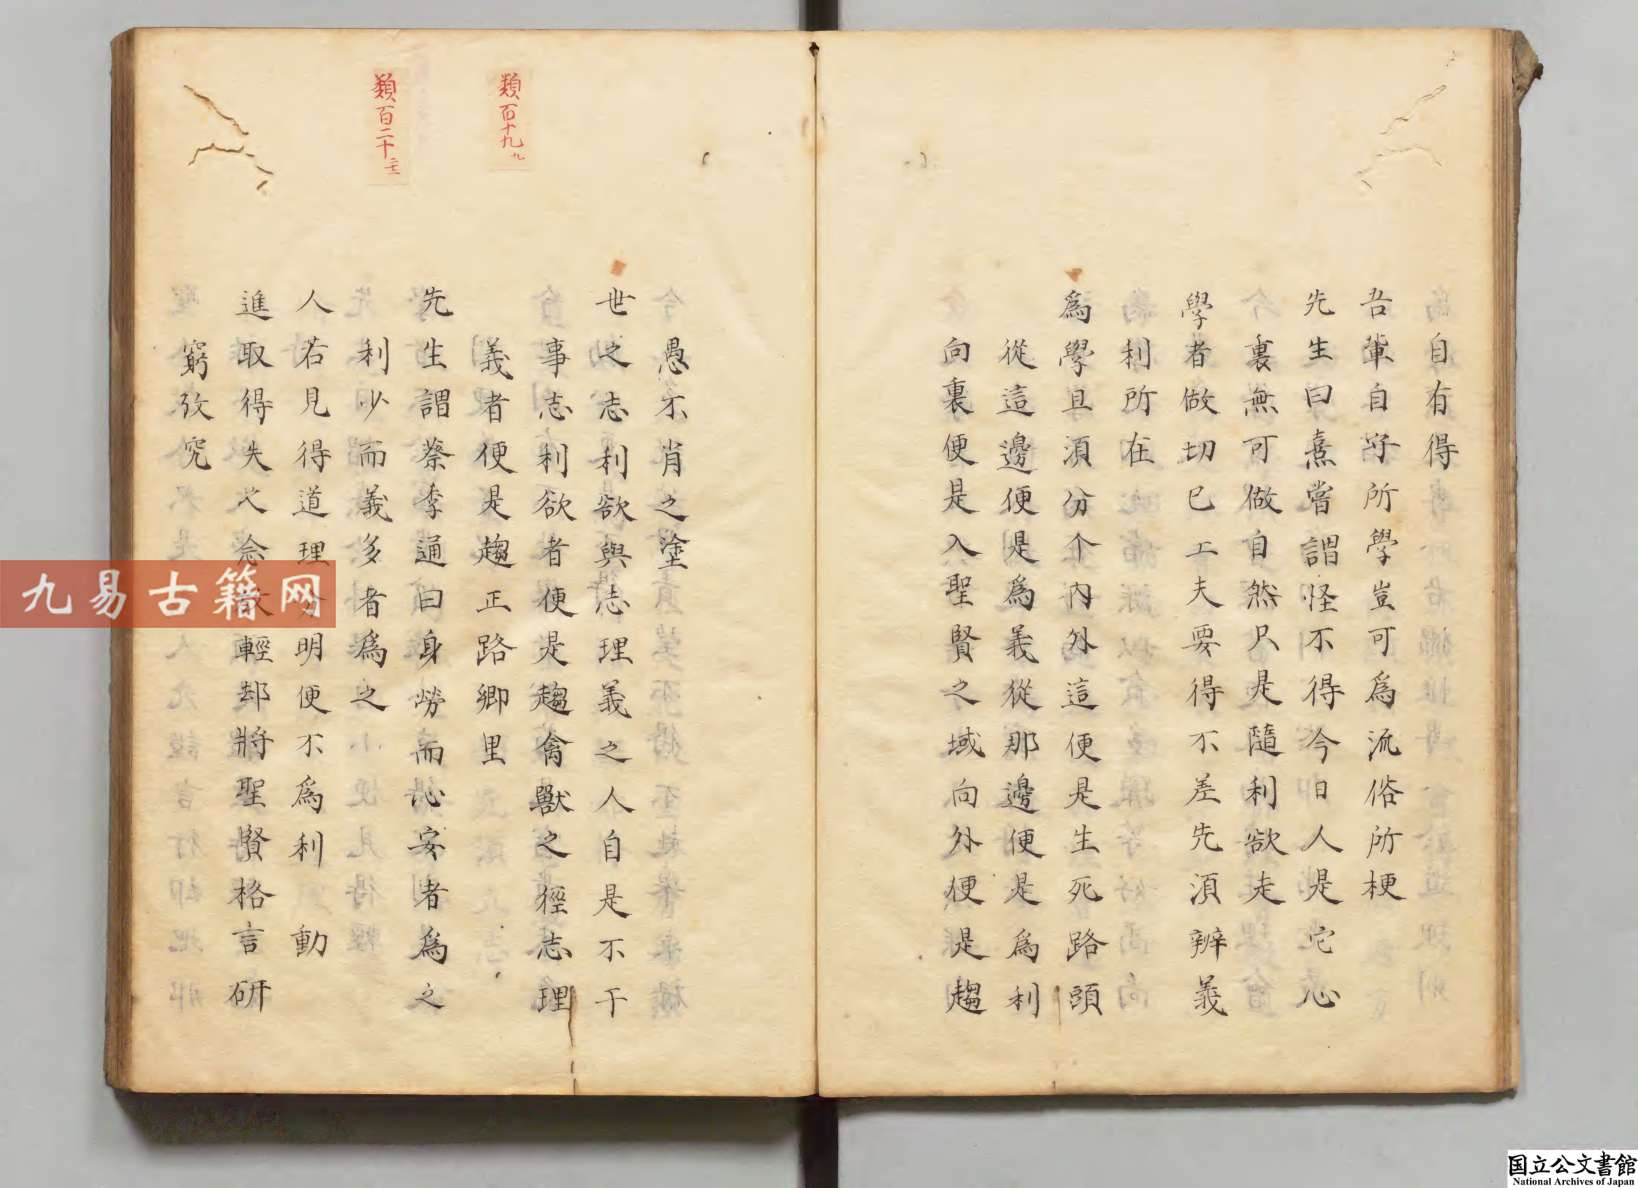 自有得
吾輩自守所學豈可爲流俗所梗
先生曰熹嘗謂怪不得今日人是它心
裏無可做自然只是隨利欲走
學者做切已工夫要得不差先須辨義
利所在
爲學且須分个內外這便是生死路頭
從這邊便是爲義從那邊便是爲利
向裏便是入聖賢之域向外便是趨
愚不肖之塗
世之志利欲與志理義之人自是不干
事志利欲者便是趨禽獸之徑志理
義者便是趨正路鄉里
先生謂蔡季通曰身勞而心安者爲之
利少而義多者爲之
人若見得道理分明便不爲利動
進取得失之念放輕却將聖賢格言研
窮攷究
類百十九 九
類百二十 三
九易古籍网
国立公文書館
National Archives of Japan